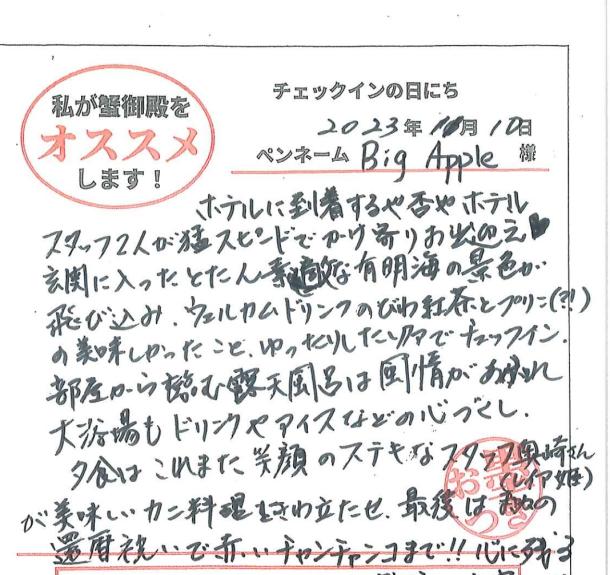 私が蟹御殿を
オススメ
します！
チェックインの日にち
2023年 月10日
ペンネーム Big Apple 様
ホテルに到着するや否やホテル
スタッフ2人が猛スピードでかけ寄りお出迎え
玄関に入ったとたん素敵な有明海の景色が
飛び込み、ウェルカムドリンクのびわ紅茶とプリン(?!)
の美味しかったこと、ゆったりしたソファでチェックイン.
部屋から臨む露天風呂は風情があふれ
大浴場もドリンクやアイスなどの心づくし.
夕食はこれまた笑顔のステキなスタッフ奥崎さん
(レイア姫)
が美味しいカニ料理をきわ立たせ、最後は の
還暦祝いで赤いチャンチャンコまで!! 心に残る